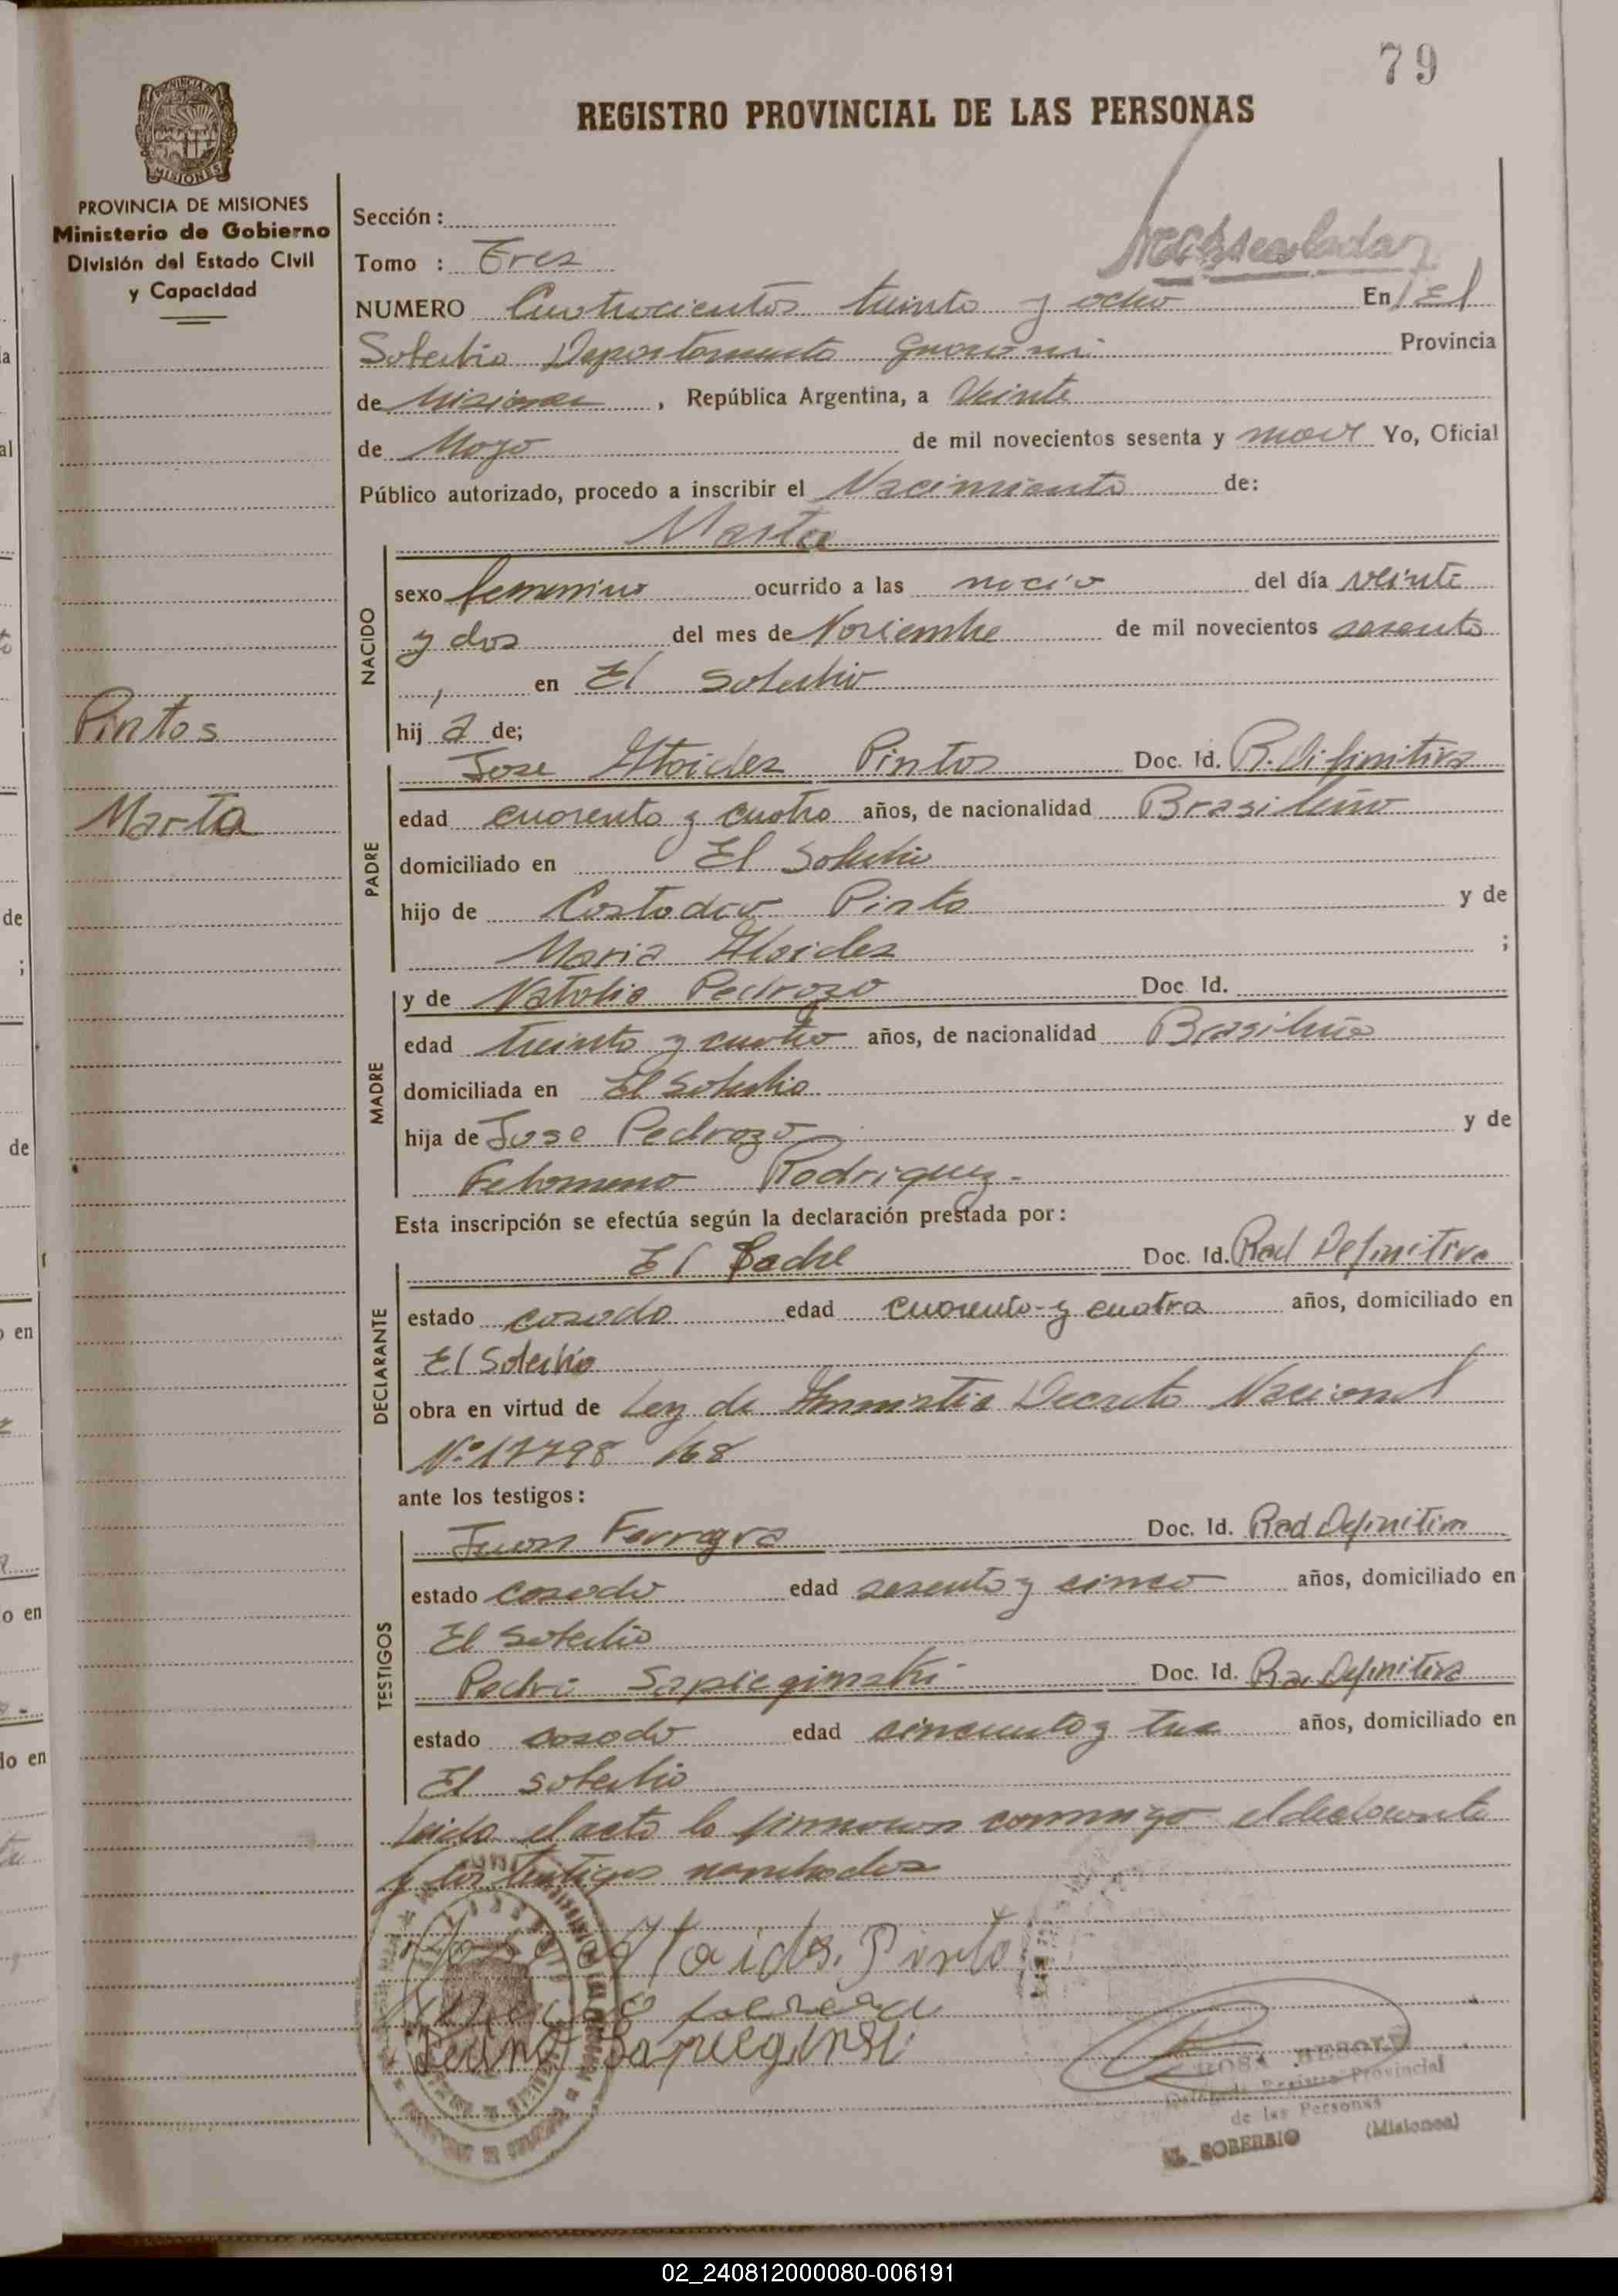 79
REGISTRO PROVINCIAL DE LAS PERSONAS
PROVINCIA DE MISIONES
MISIONES
PROVINCIA DE MISIONES
Ministerio de Gobierno
División del Estado Civil
y Capacidad
Sección:
Tomo : Tres
NUMERO Cuatrocientos treinta y ocho En El
Soberbio Departamento Guarani Provincia
de Misiones, República Argentina, a Veinte
de Mayo de mil novecientos sesenta y nueve Yo, Oficial
Público autorizado, procedo a inscribir el Nacimiento de:
Marta
NACIDO
sexo femenino ocurrido a las nació del día veinte
y dos del mes de Noviembre de mil novecientos sesenta
, en El Soberbio
hij a de;
Pintos
Marta
PADRE
Jose Pintos Doc. Id. R. Difinitiva
edad cuarenta y cuatro años, de nacionalidad Brasileño
domiciliado en El Soberbio
hijo de Pinto y de
Maria ;
MADRE
y de Natalia Pedrozo Doc. Id.
edad treinta y cuatro años, de nacionalidad Brasileña
domiciliada en El Soberbio
hija de Jose Pedrozo y de
Rodriguez.
Esta inscripción se efectúa según la declaración prestada por:
DECLARANTE
El Padre Doc. Id. Rad Definitiva
estado casado edad cuarenta y cuatro años, domiciliado en
El Soberbio
obra en virtud de Ley de Amnistia Decreto Nacional
Nº 17798/68
ante los testigos:
TESTIGOS
Juan Doc. Id. Rad Definitiva
estado casado edad sesenta y cinco años, domiciliado en
El Soberbio
Pedro Sapieginski Doc. Id. Rad Definitiva
estado casado edad cincuenta y tres años, domiciliado en
El Soberbio
Leida el acta la firmaron conmigo el declarante
y los testigos nombrados
Pinto
Sapieginski
Registro Provincial
de las Personas
EL SOBERBIO (Misiones)
02_240812000080-006191